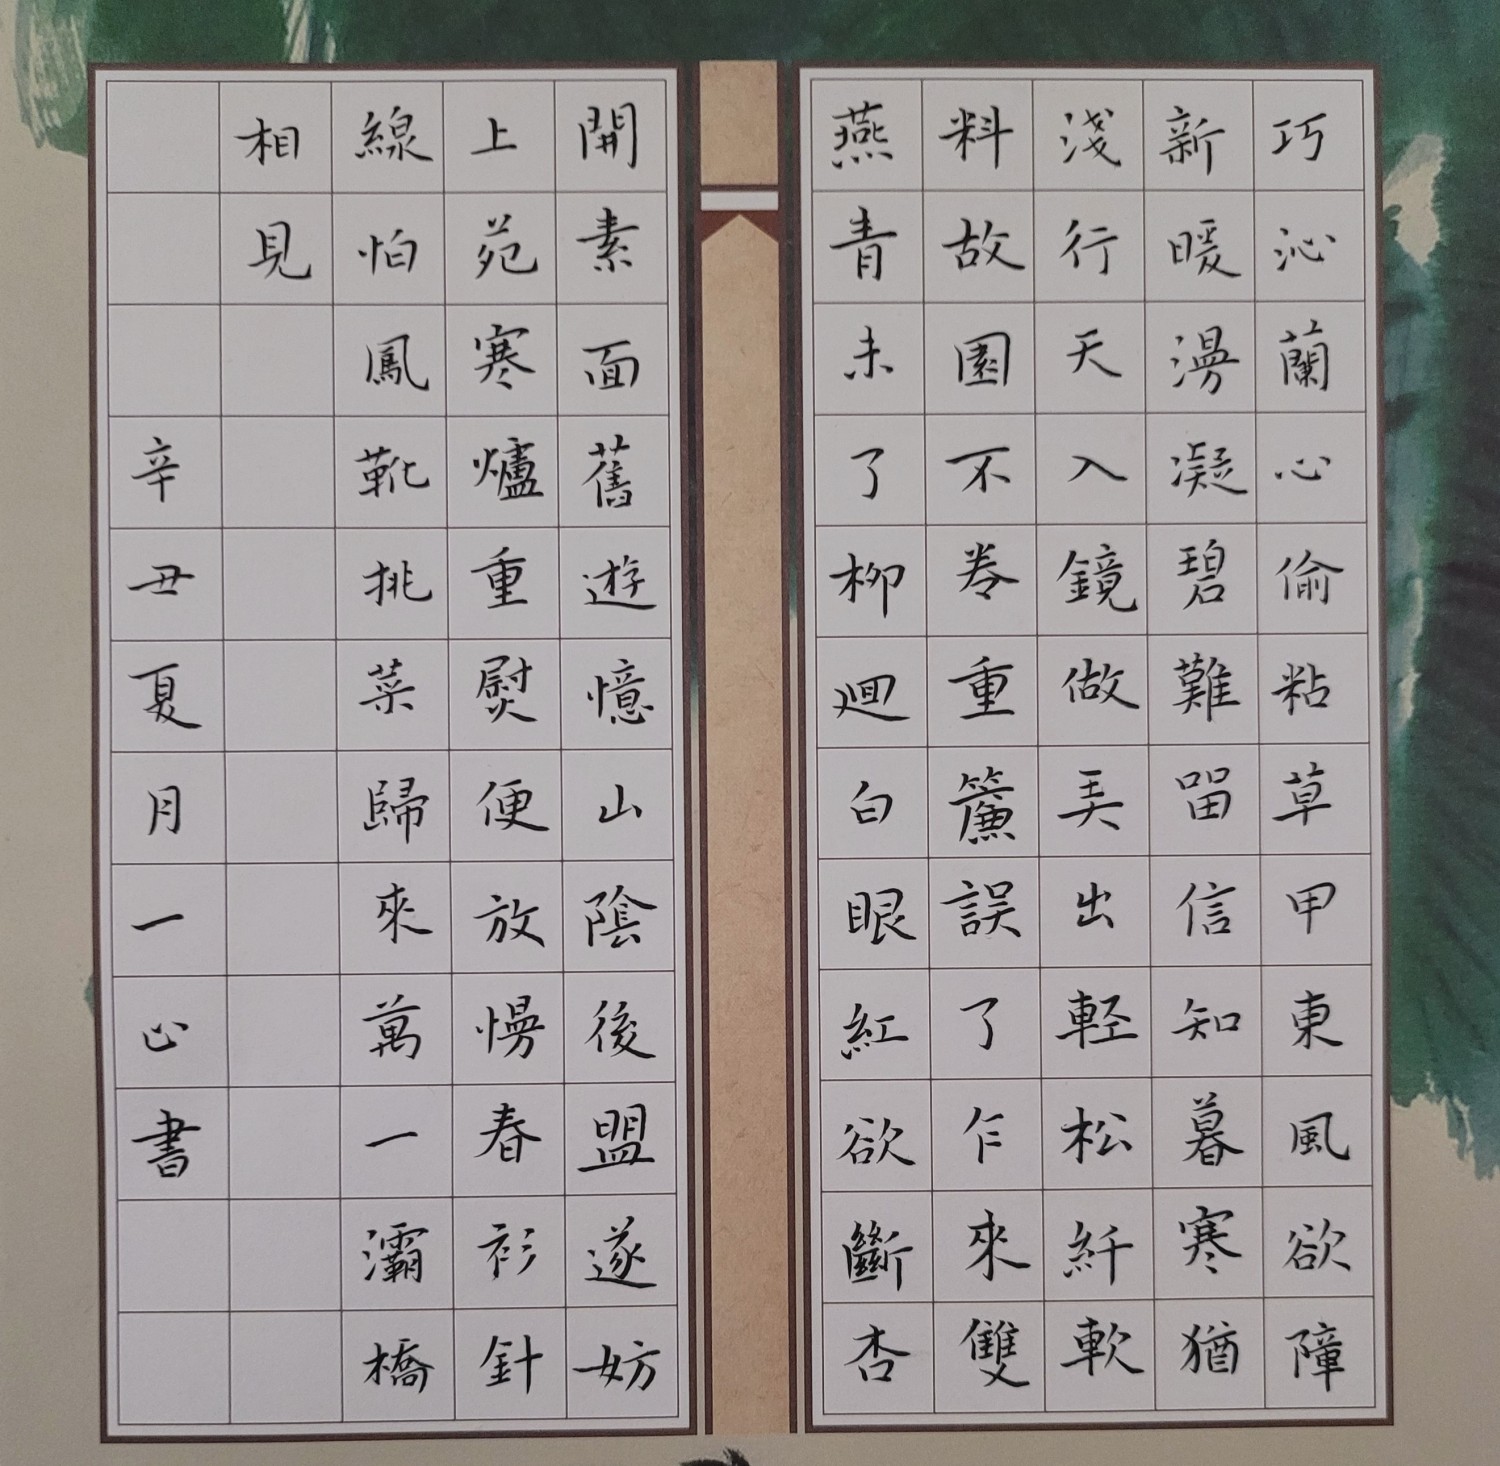 巧沁蘭心偷粘草甲東風欲障
新暖漫凝碧難留信知暮寒猶
淺行天入鏡做弄出輕松紆軟
料故園不卷重簾誤了乍來雙
燕青未了柳迴白眼紅欲斷杏
開素面舊遊憶山陰後盟遂妨
上苑寒爐重熨便放慢春衫針
線怕鳳靴挑菜歸來萬一灞橋
相見
辛丑夏月一心書